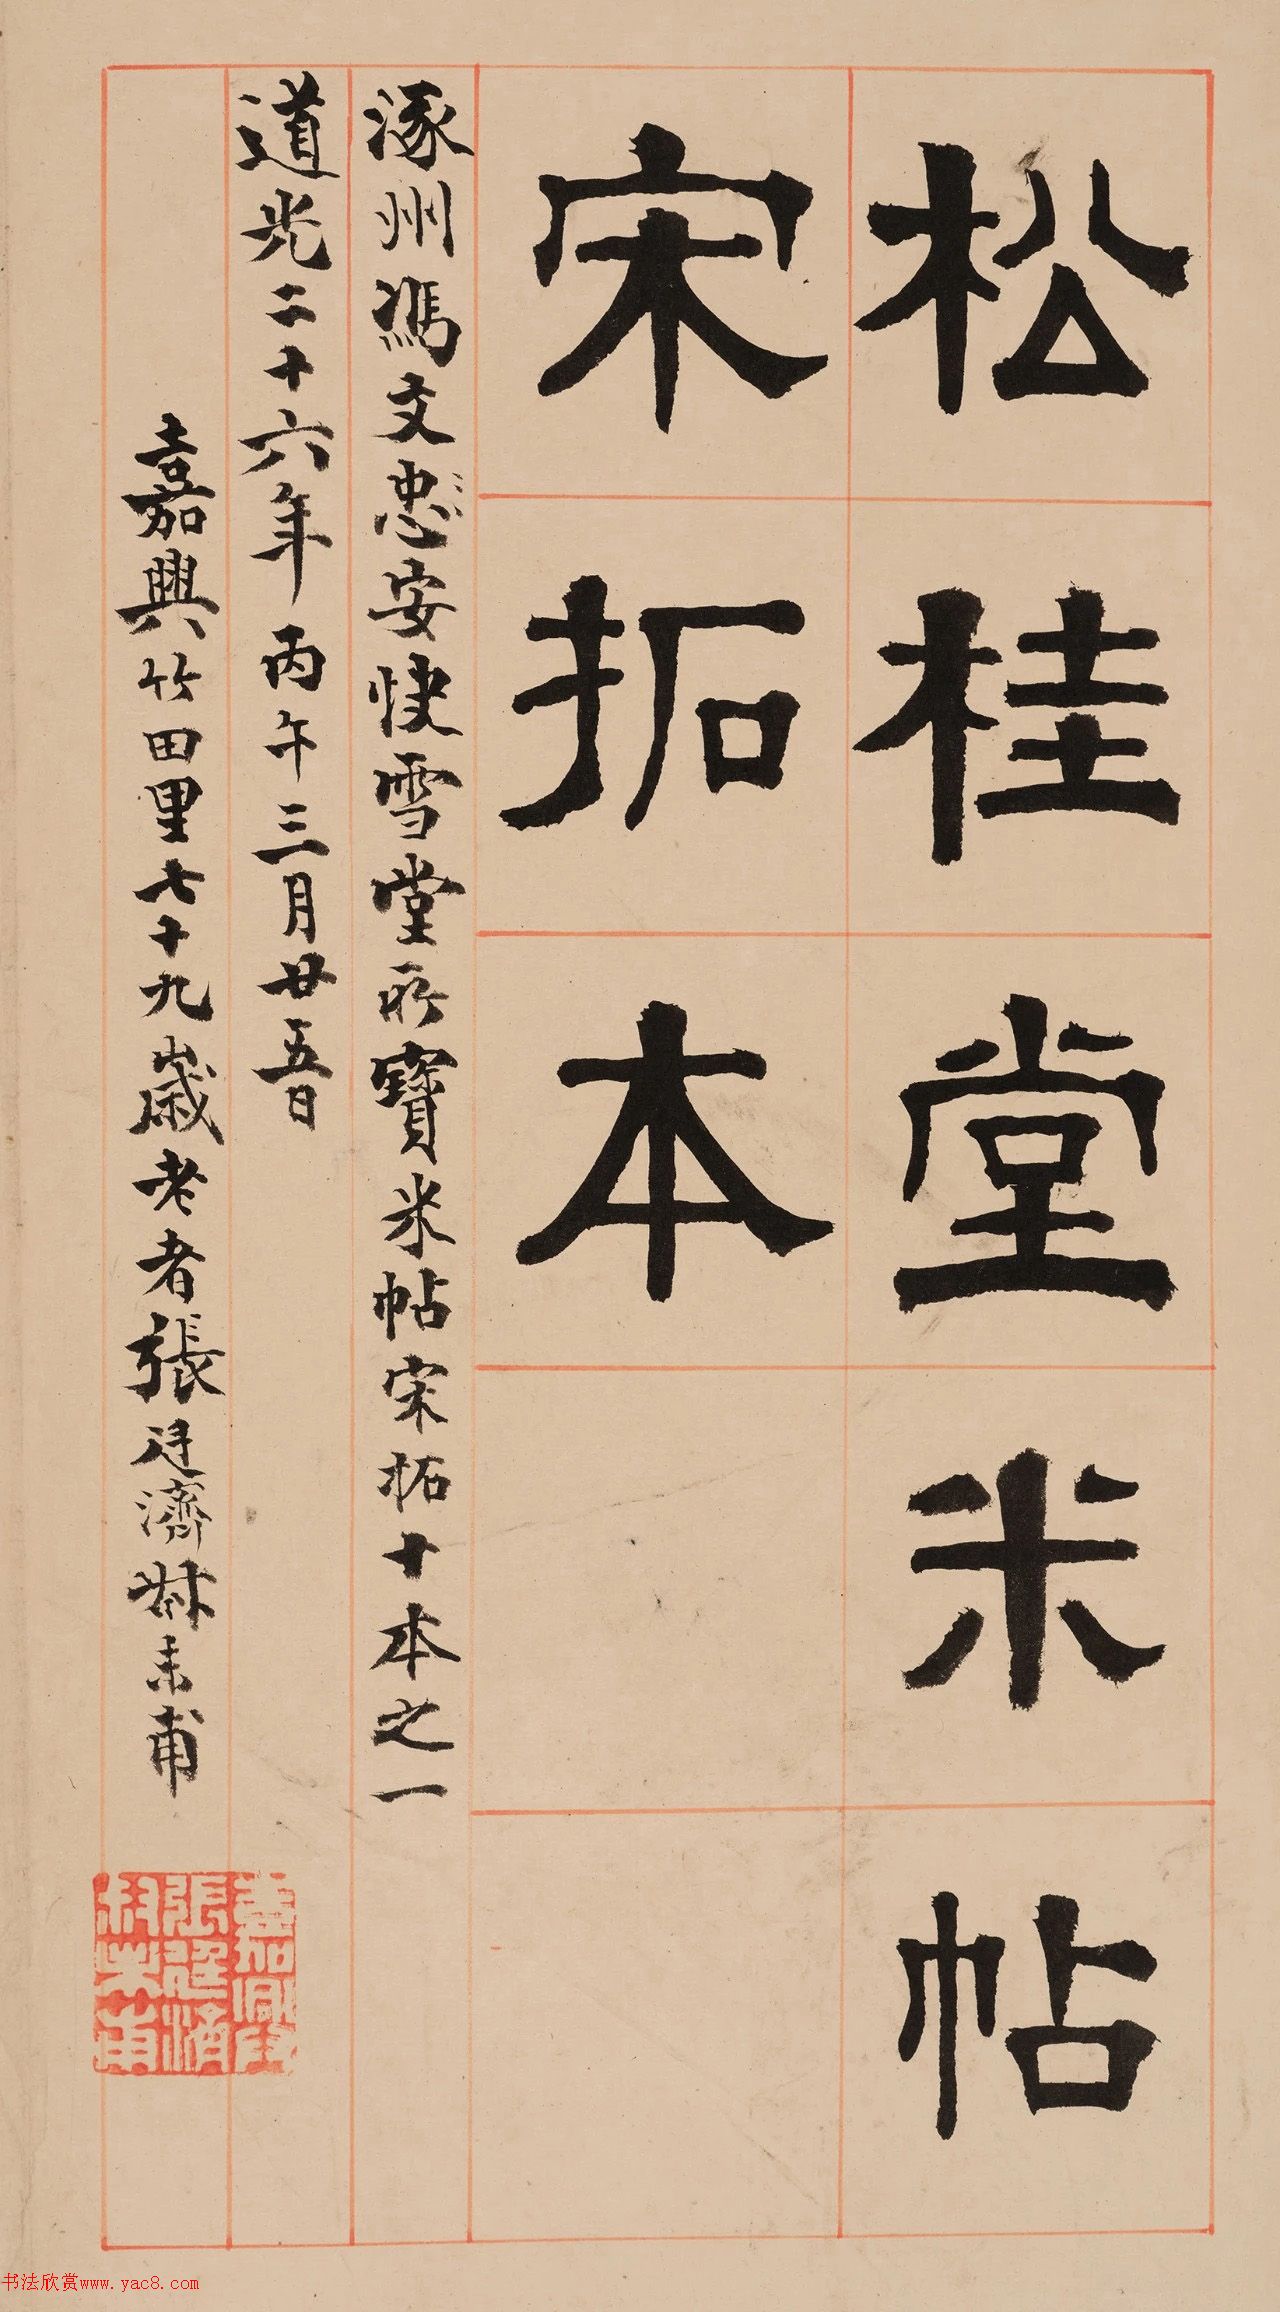 松桂堂米帖
宋拓本
涿州馮文忠安快雪堂所寶米帖宋拓十本之一
道光二十六年丙午三月廿五日
嘉興竹田里七十九歲老者張廷濟叔未甫
張廷濟
叔未甫
书法欣赏www.yac8.com